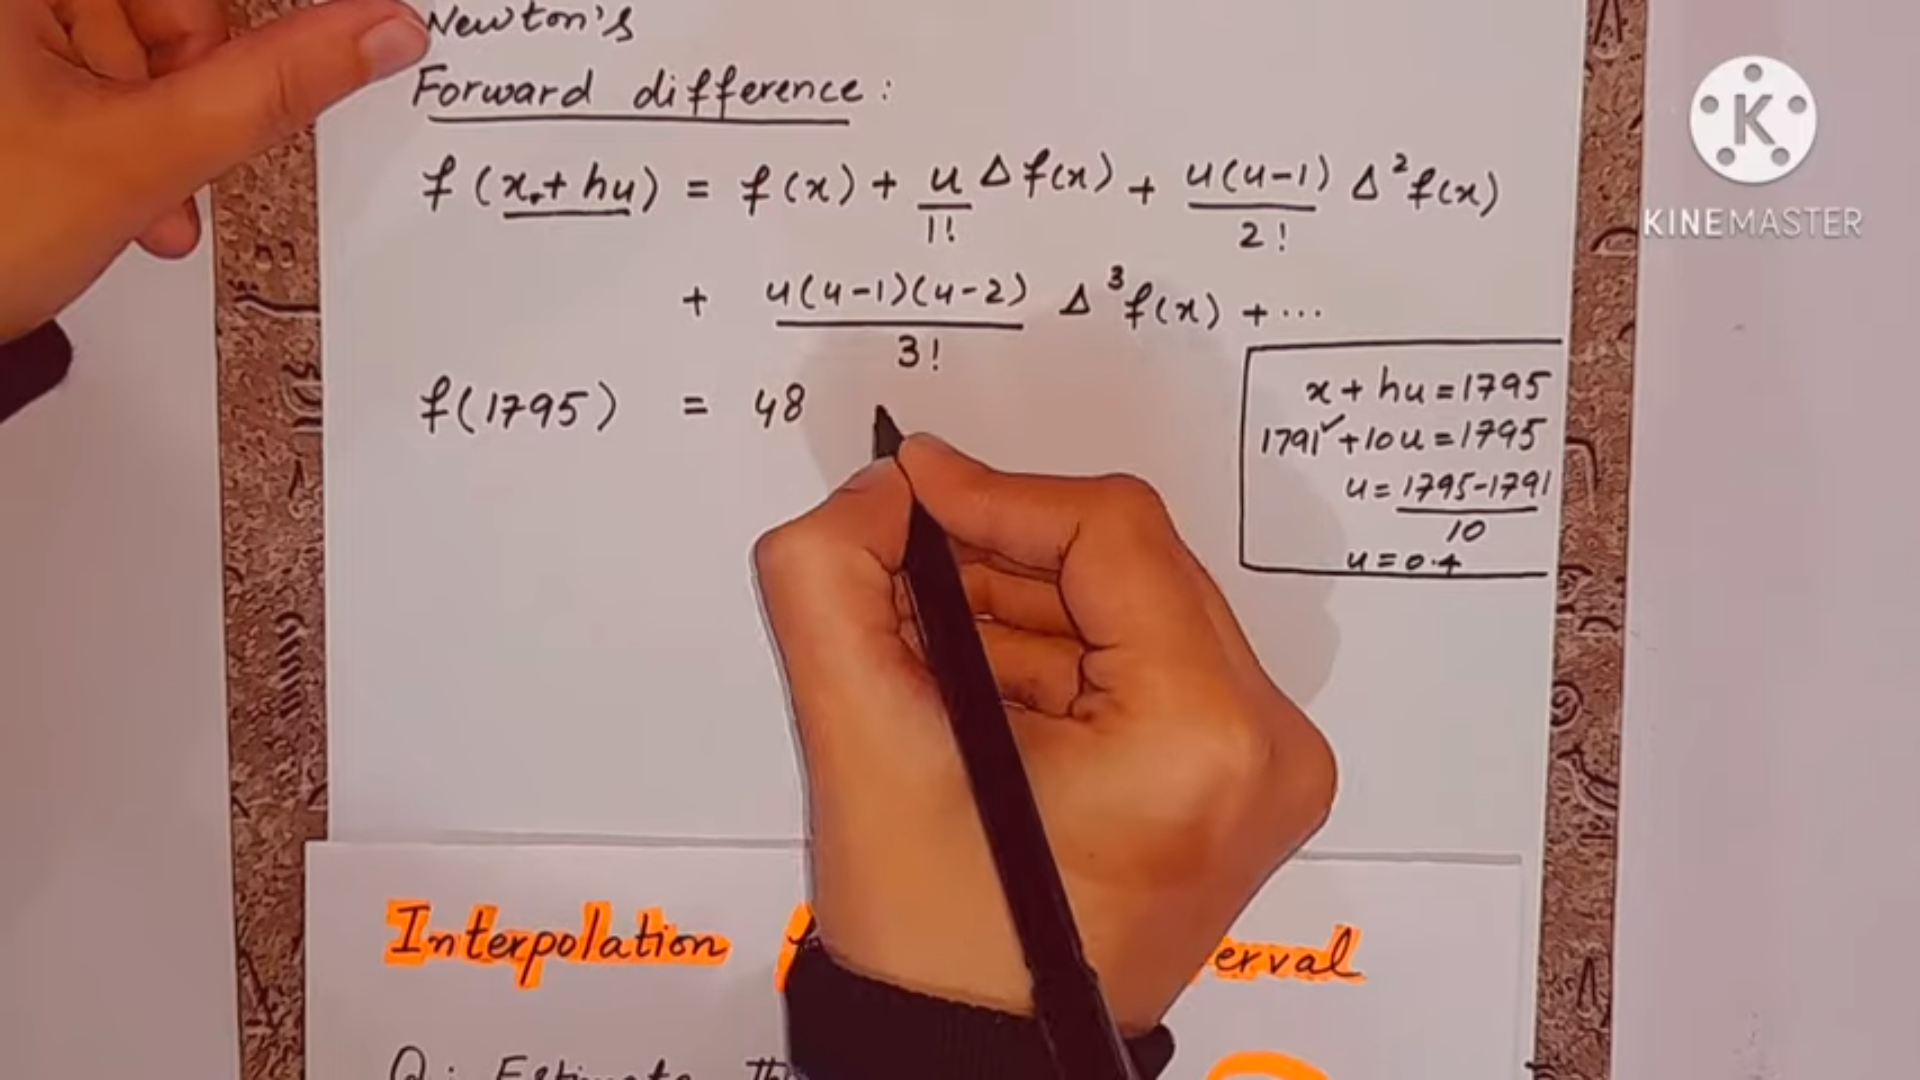 Newton's
Forward difference:
f(x.+ hu) = f(x) + u/1! Δf(x) + u(u-1)/2! Δ²f(x)
+ u(u-1)(u-2)/3! Δ³f(x) + ...
f(1795) = 48
x + hu = 1795
1791✓ + 10u = 1795
u = 1795-1791/10
u = 0.4
Interpolation erval
Q: Estimate
K
KINEMASTER